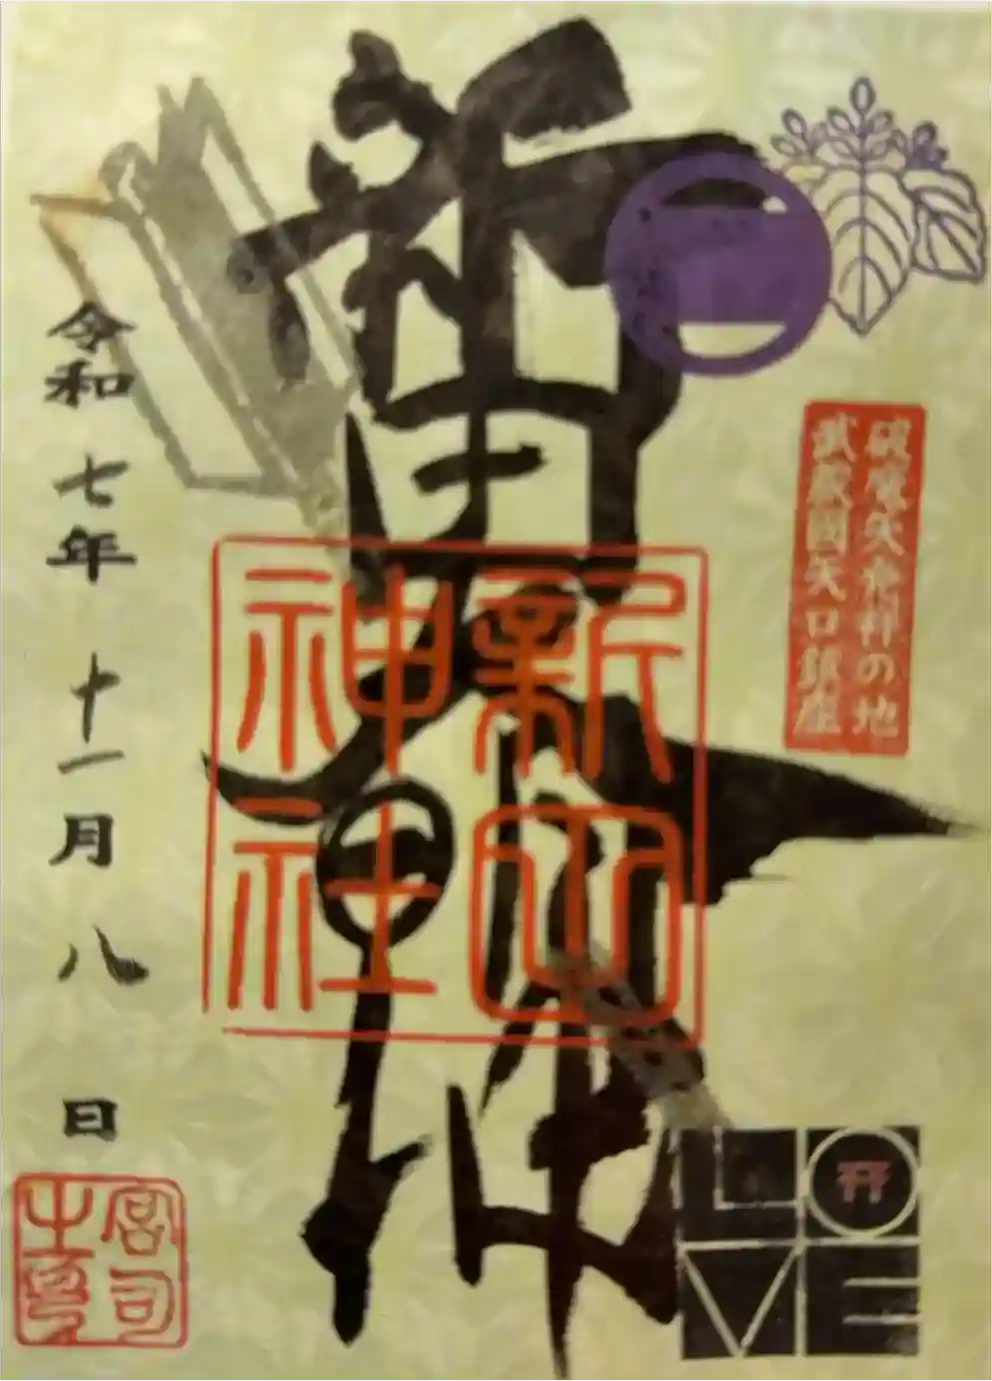 破魔矢発祥の地
武蔵國矢口鎮座
新田大神
新田
神社
令和七年十一月八日
宮司
之印
LO
VE